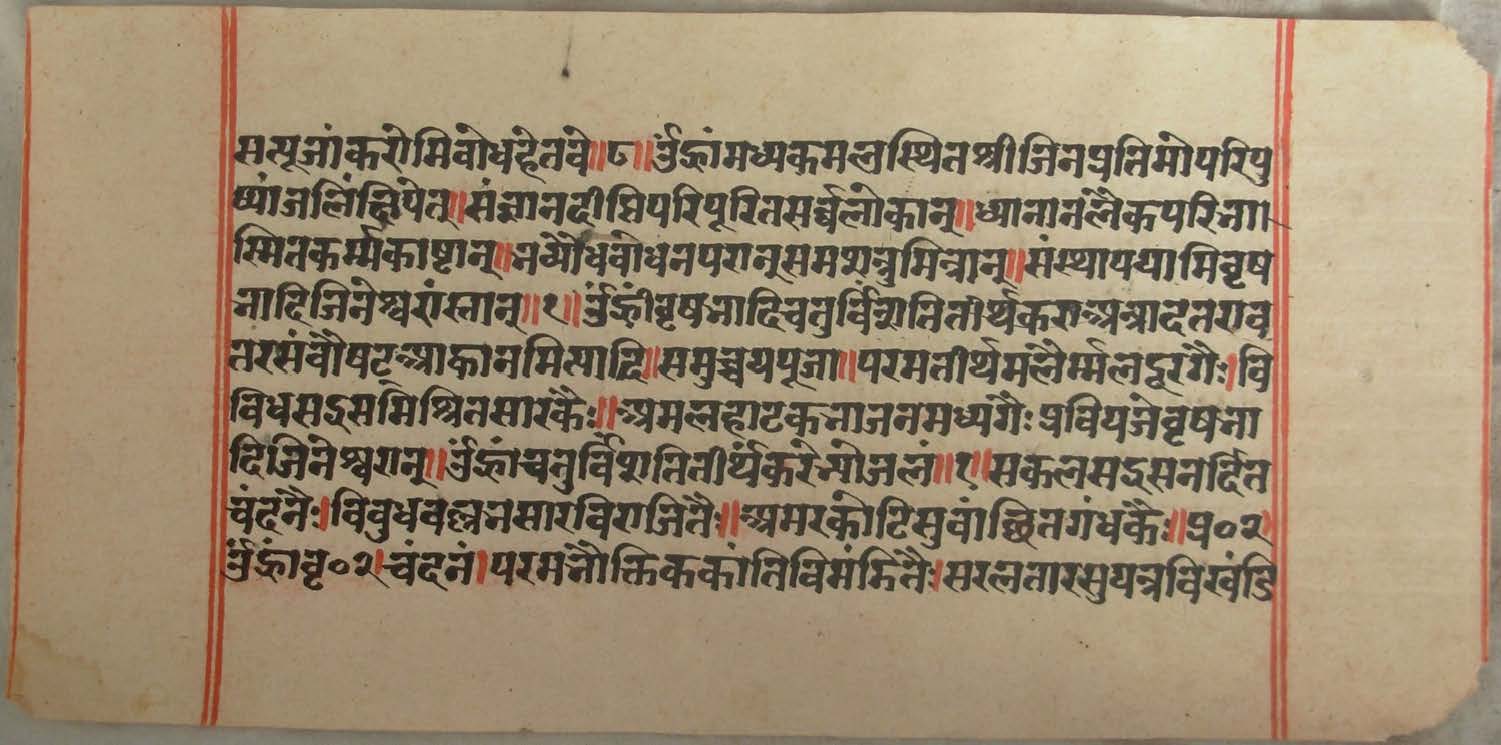 सत्पूजांकरोमिवोधहेतवे॥८॥ॐह्रांमध्यकमलस्थितश्रीजिनप्रतिमोपरिपु
ष्पांजलिंक्षिपेत्॥संज्ञानदीप्तिपरिपूरितसर्व्वलोकान्॥ध्यानानलैकपरिना।
स्मितकर्म्मकाष्टान्॥भव्यौधवोधनपरान्समशत्रुमित्रान्॥संस्थापयामिवृष
भादिजिनेश्वरांस्तान्॥१॥ॐह्रींवृषभादिचतुर्विंशतितीर्थकराअत्रावतराव
तरसंवौषटआह्वानमित्यादि॥समुच्चयपूजा॥परमतीर्थमलैर्म्मलदूरगैः।वि
विधसद्रसमिश्रितसारकैः॥अमलहाटकभाजनमध्यगैः प्रवियजेवृषभा
दिजिनेश्वरान्॥ॐह्रांचतुर्विंशतितीर्थंकरेभ्योजलं॥१॥सकलसद्रसनर्दित
चंदनैः।विवुधवल्लभसारविराजितैः॥अमरकोटिसुवांछितगंधकैः॥प्र०२
ॐह्रांवृ०२चंदनं।परममौक्तिककांतिविमंडितैः।सरलतारसुयत्रविखंडि